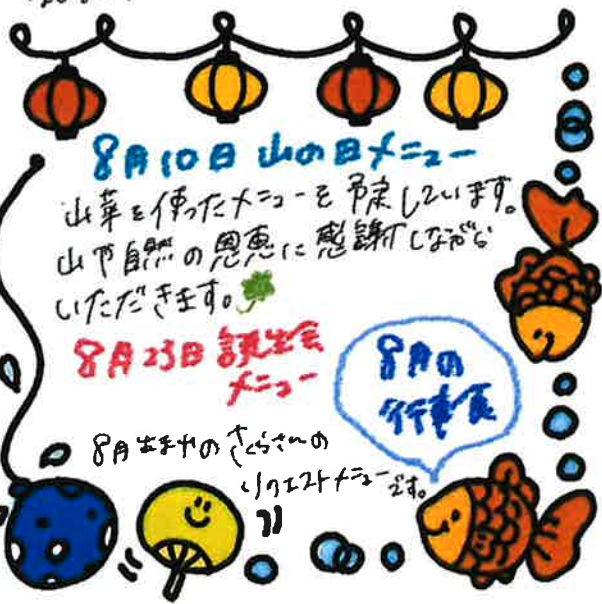 8月10日 山の日メニュー
山菜を使ったメニューを予定しています。
山や自然の恩恵に感謝しながら
いただきます。
8月23日 誕生会
メニュー
8月の
行事食
8月生まれの さくらさんの
リクエストメニューです。